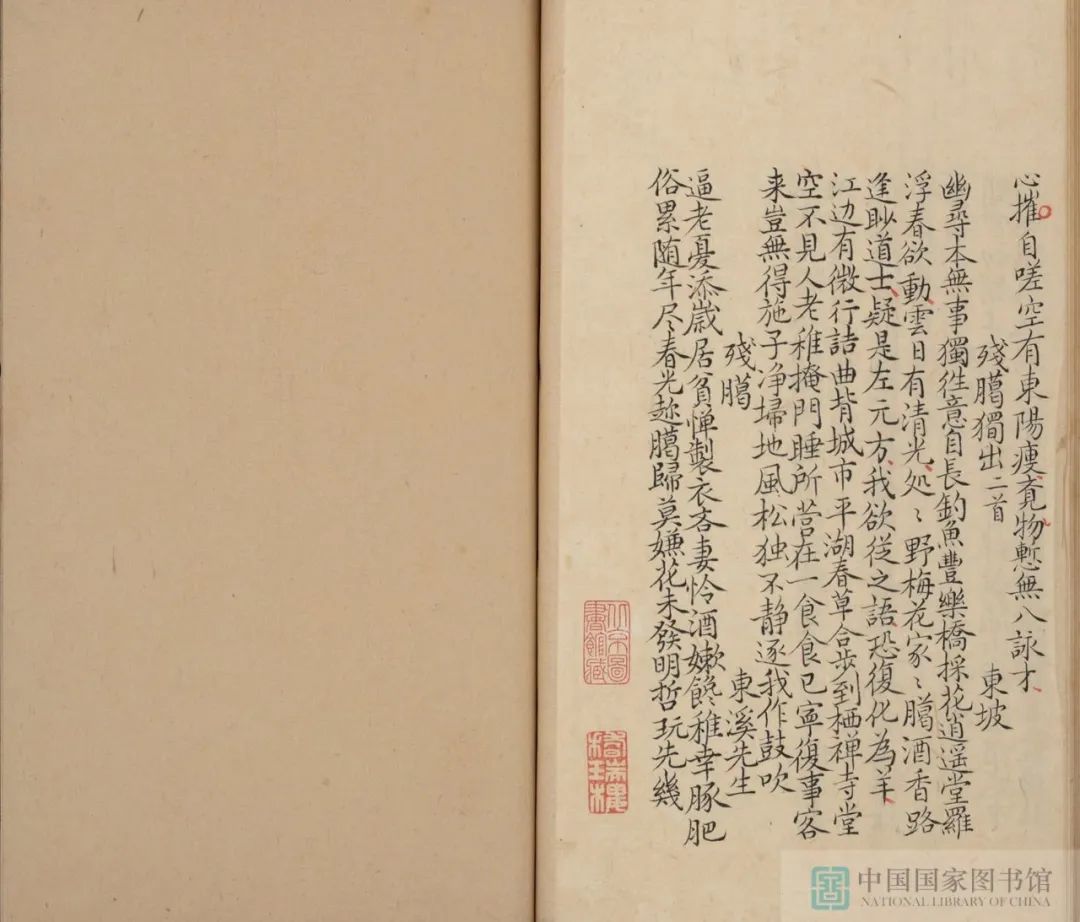 心摧自嗟空有東陽瘦覔物慙無八詠才
殘臈獨出二首 東坡
幽尋本無事獨往意自長釣魚豐樂橋採花逍遥堂羅
浮春欲動雲日有清光处〻野梅花家〻臈酒香路
逢眇道士疑是左元方我欲從之語恐復化為羊
江边有微行詰曲背城市平湖春草合步到栖禅寺堂
空不見人老稚掩門睡所营在一食食已寧復事客
来豈無得施子净埽地風松独不静逐我作鼓吹
殘臈 東溪先生
逼老憂添歳居貧惮製衣吝妻怜酒嫩饞稚幸豚肥
俗累随年尽春光趂臈歸莫嫌花未發明哲玩先幾
北京圖
書館藏
稽瑞樓
中国国家图书馆
NATIONAL LIBRARY OF CHINA